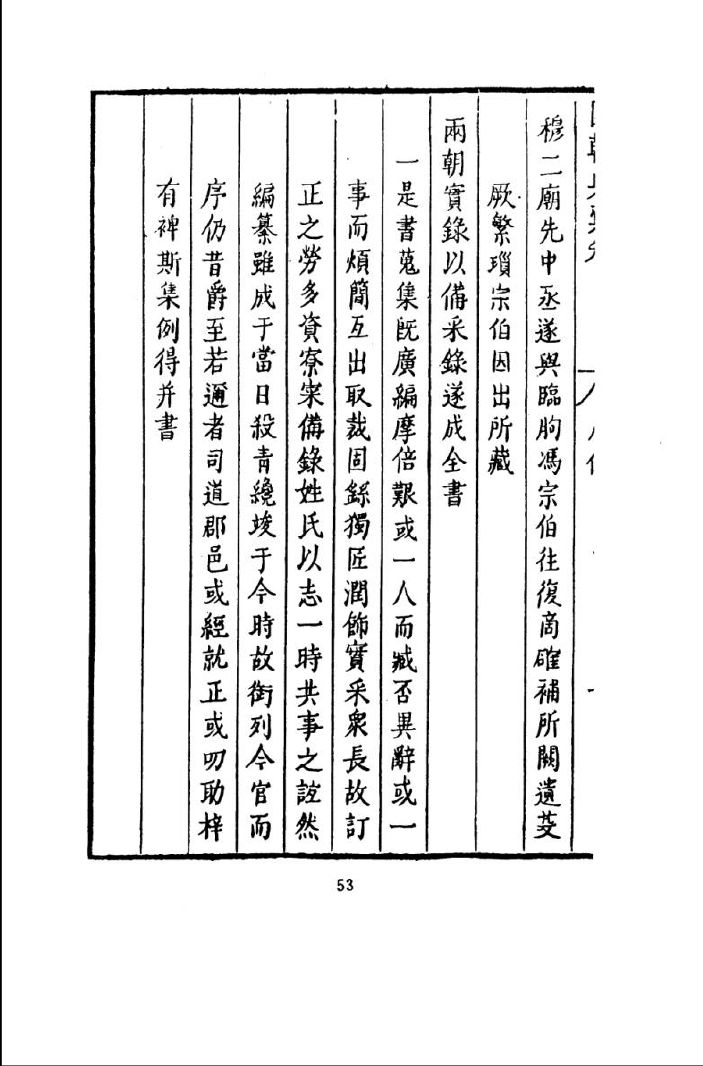 穆二廟先中丞遂與臨朐馮宗伯往復啇確補所闕遺芟
厥繁瑣宗伯因出所藏
兩朝實錄以備采錄遂成全書
一是書蒐集旣廣編摩倍艱或一人而臧否異辭或一
事而煩簡互出取裁固繇獨匠潤飾實采衆長故訂
正之勞多資寮寀備錄姓氏以志一時共事之誼然
編纂雖成于當日殺青纔竣于今時故銜列今官而
序仍昔爵至若邇者司道郡邑或經就正或叨助梓
有裨斯集例得并書
53